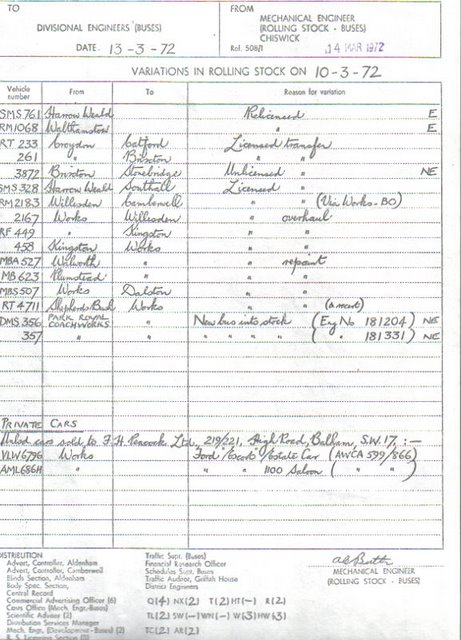 TO
FROM
DIVISIONAL ENGINEERS (BUSES)
MECHANICAL ENGINEER
(ROLLING STOCK - BUSES)
CHISWICK
DATE 13-3-72
Ref. 508/1
14 MAR 1972
VARIATIONS IN ROLLING STOCK ON 10-3-72
Vehicle number From To Reason for variation
SMS 761 Harrow Weald Relicensed E
RM 1068 Walthamstow " E
RT 233 Croydon Catford Licensed transfer
261 " Brixton " "
3872 Brixton Stonebridge Unlicensed " NE
SMS 328 Harrow Weald Southall Licensed "
RM 2183 Willesden Camberwell " " (Via Works-BO)
2167 Works Willesden " overhaul
RF 449 " Kingston " "
458 Kingston Works " "
MBA 527 Walworth " " repaint
MB 623 Plumstead " " "
MBS 507 Works Dalston " "
RT 4711 Shepherds Bush Works "
DMS 356 PARK ROYAL COACHWORKS " New bus into stock (Eng No 181204) NE
357 " " " " " " ( " 181331) NE
PRIVATE CARS
cars sold to F. H. Peacock Ltd, 219/221, High Road, Balham, S.W.17, :-
VLW 679G Works Ford "Escort" Estate Car (AWCA 599/866)
AML 686H " " " 1100 Saloon ( " " )
DISTRIBUTION
Advert. Controller, Aldenham
Advert. Controller, Camberwell
Blinds Section, Aldenham
Body Spec. Section,
Central Record
Commercial Advertising Officer (6)
Cars Office (Mech. Engr.-Buses)
Scientific Adviser (2)
Distribution Services Manager
Mech. Engr. (Development-Buses) (2)
R.S. Licensing Section (5)
Traffic Supt. (Buses)
Financial Research Officer
Schedules Supt. Buses
Traffic Auditor, Griffith House
District Engineers
Q(4) NX(2) T(2) HT(-) R(2)
TL(2) SW(-) WN(-) W(3) HW(3)
TC(2) AR(2)
MECHANICAL ENGINEER
(ROLLING STOCK - BUSES)